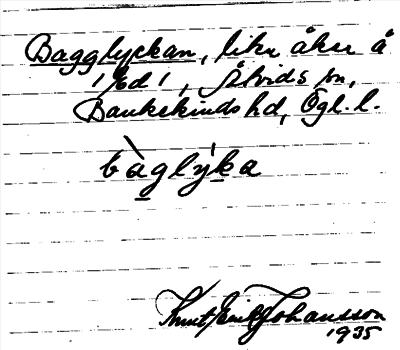 Bagglyckan, liten åker å
1/6d 1, Åtvids sn,
Bankekinds hd, Ögl. l.
bàglýka
Knut Emil Johansson
1935